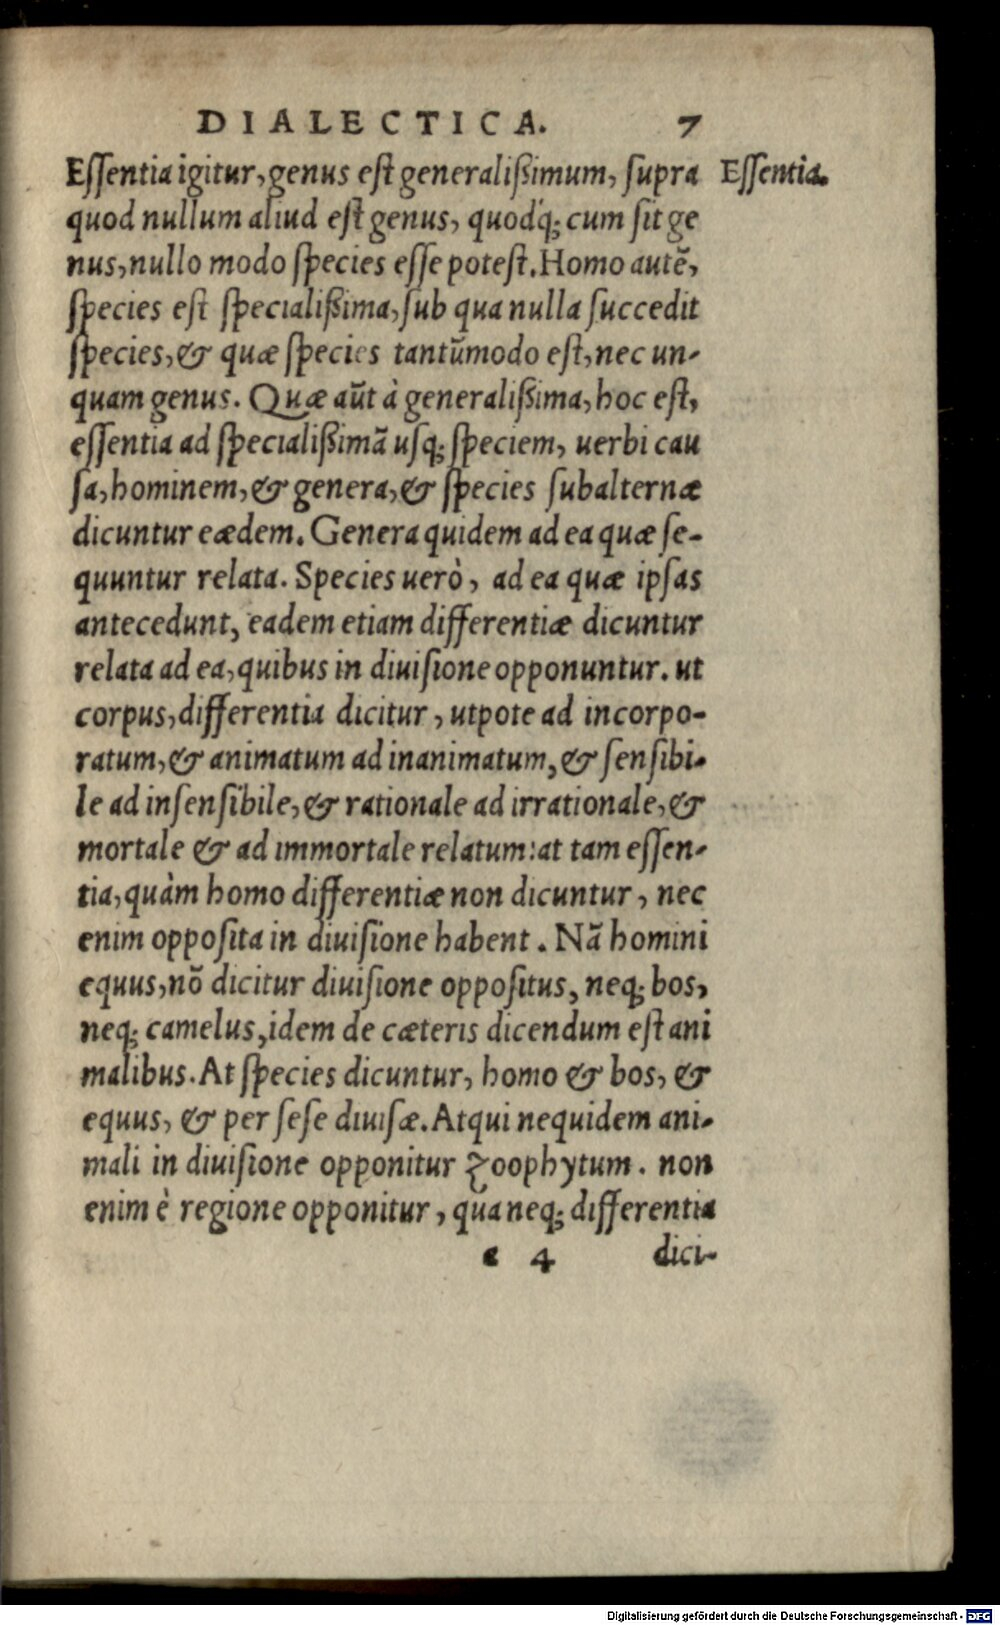 DIALECTICA. 7
Eſſentia igitur, genus eſt generalißimum, ſupra Eſſentia.
quod nullum aliud eſt genus, quodq́; cum ſit ge
nus, nullo modo ſpecies eſſe poteſt. Homo autē,
ſpecies eſt ſpecialißima, ſub qua nulla ſuccedit
ſpecies, & quæ ſpecies tantūmodo eſt, nec un-
quam genus. Quæ aūt à generalißima, hoc eſt,
eſſentia ad ſpecialißimā uſq; ſpeciem, uerbi cau
ſa, hominem, & genera, & ſpecies ſubalternæ
dicuntur eædem. Genera quidem ad ea quæ ſe-
quuntur relata. Species uerò, ad ea quæ ipſas
antecedunt, eadem etiam differentiæ dicuntur
relata ad ea, quibus in diuiſione opponuntur. ut
corpus, differentia dicitur, utpote ad incorpo-
ratum, & animatum ad inanimatum, & ſenſibi-
le ad inſenſibile, & rationale ad irrationale, &
mortale & ad immortale relatum: at tam eſſen-
tia, quàm homo differentiæ non dicuntur, nec
enim oppoſita in diuiſione habent. Nā homini
equus, nō dicitur diuiſione oppoſitus, neq; bos,
neq; camelus, idem de cæteris dicendum eſt ani
malibus. At ſpecies dicuntur, homo & bos, &
equus, & per ſeſe diuiſæ. Atqui nequidem ani-
mali in diuiſione opponitur zoophytum. non
enim è regione opponitur, qua neq; differentia
e 4 dici-
Digitalisierung gefördert durch die Deutsche Forschungsgemeinschaft - DFG